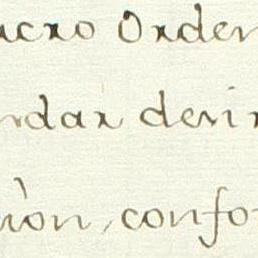 acro Orden
ndar devir
iòn, confo